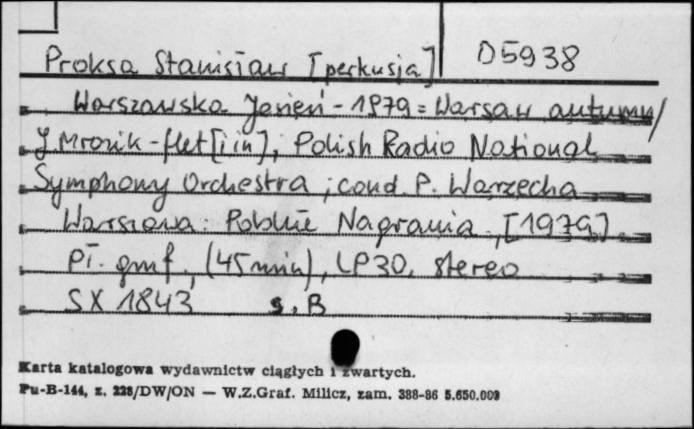 Proksa Stanisław [perkusja] D5938
Warszawska Jesień - 1979 = Warsaw autumn /
J. Mrozik - flet [i in], Polish Radio National
Symphony Orchestra ; cond. P. Warzecha
Warszawa: Polskie Nagrania, [1979]
Pł. gmf., (45 min), LP30, stereo
SX 1843 s. B
Karta katalogowa wydawnictw ciągłych i zwartych.
Pu-B-144, z. 228/DW/ON — W.Z.Graf. Milicz, zam. 388-86 5.650.000